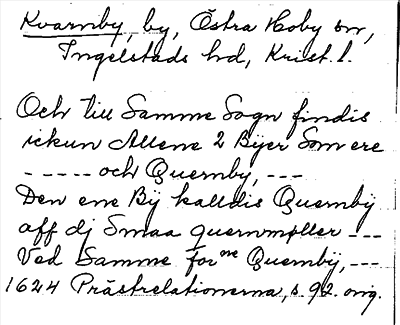 Kvarnby, by, Östra Hoby sn,
Ingelstads hd, Krist. l.
Och till Samme Sogn findis
ickun Allene 2 Byer Som ere
- - - - - och Quernby, - - -
Den ene Bÿ kalldis Quernbÿ
aff dj Smaa quernmøller - - -
Ved Samme forne Quernbÿ, - - -
1624 Prästrelationerna, s. 92. orig.